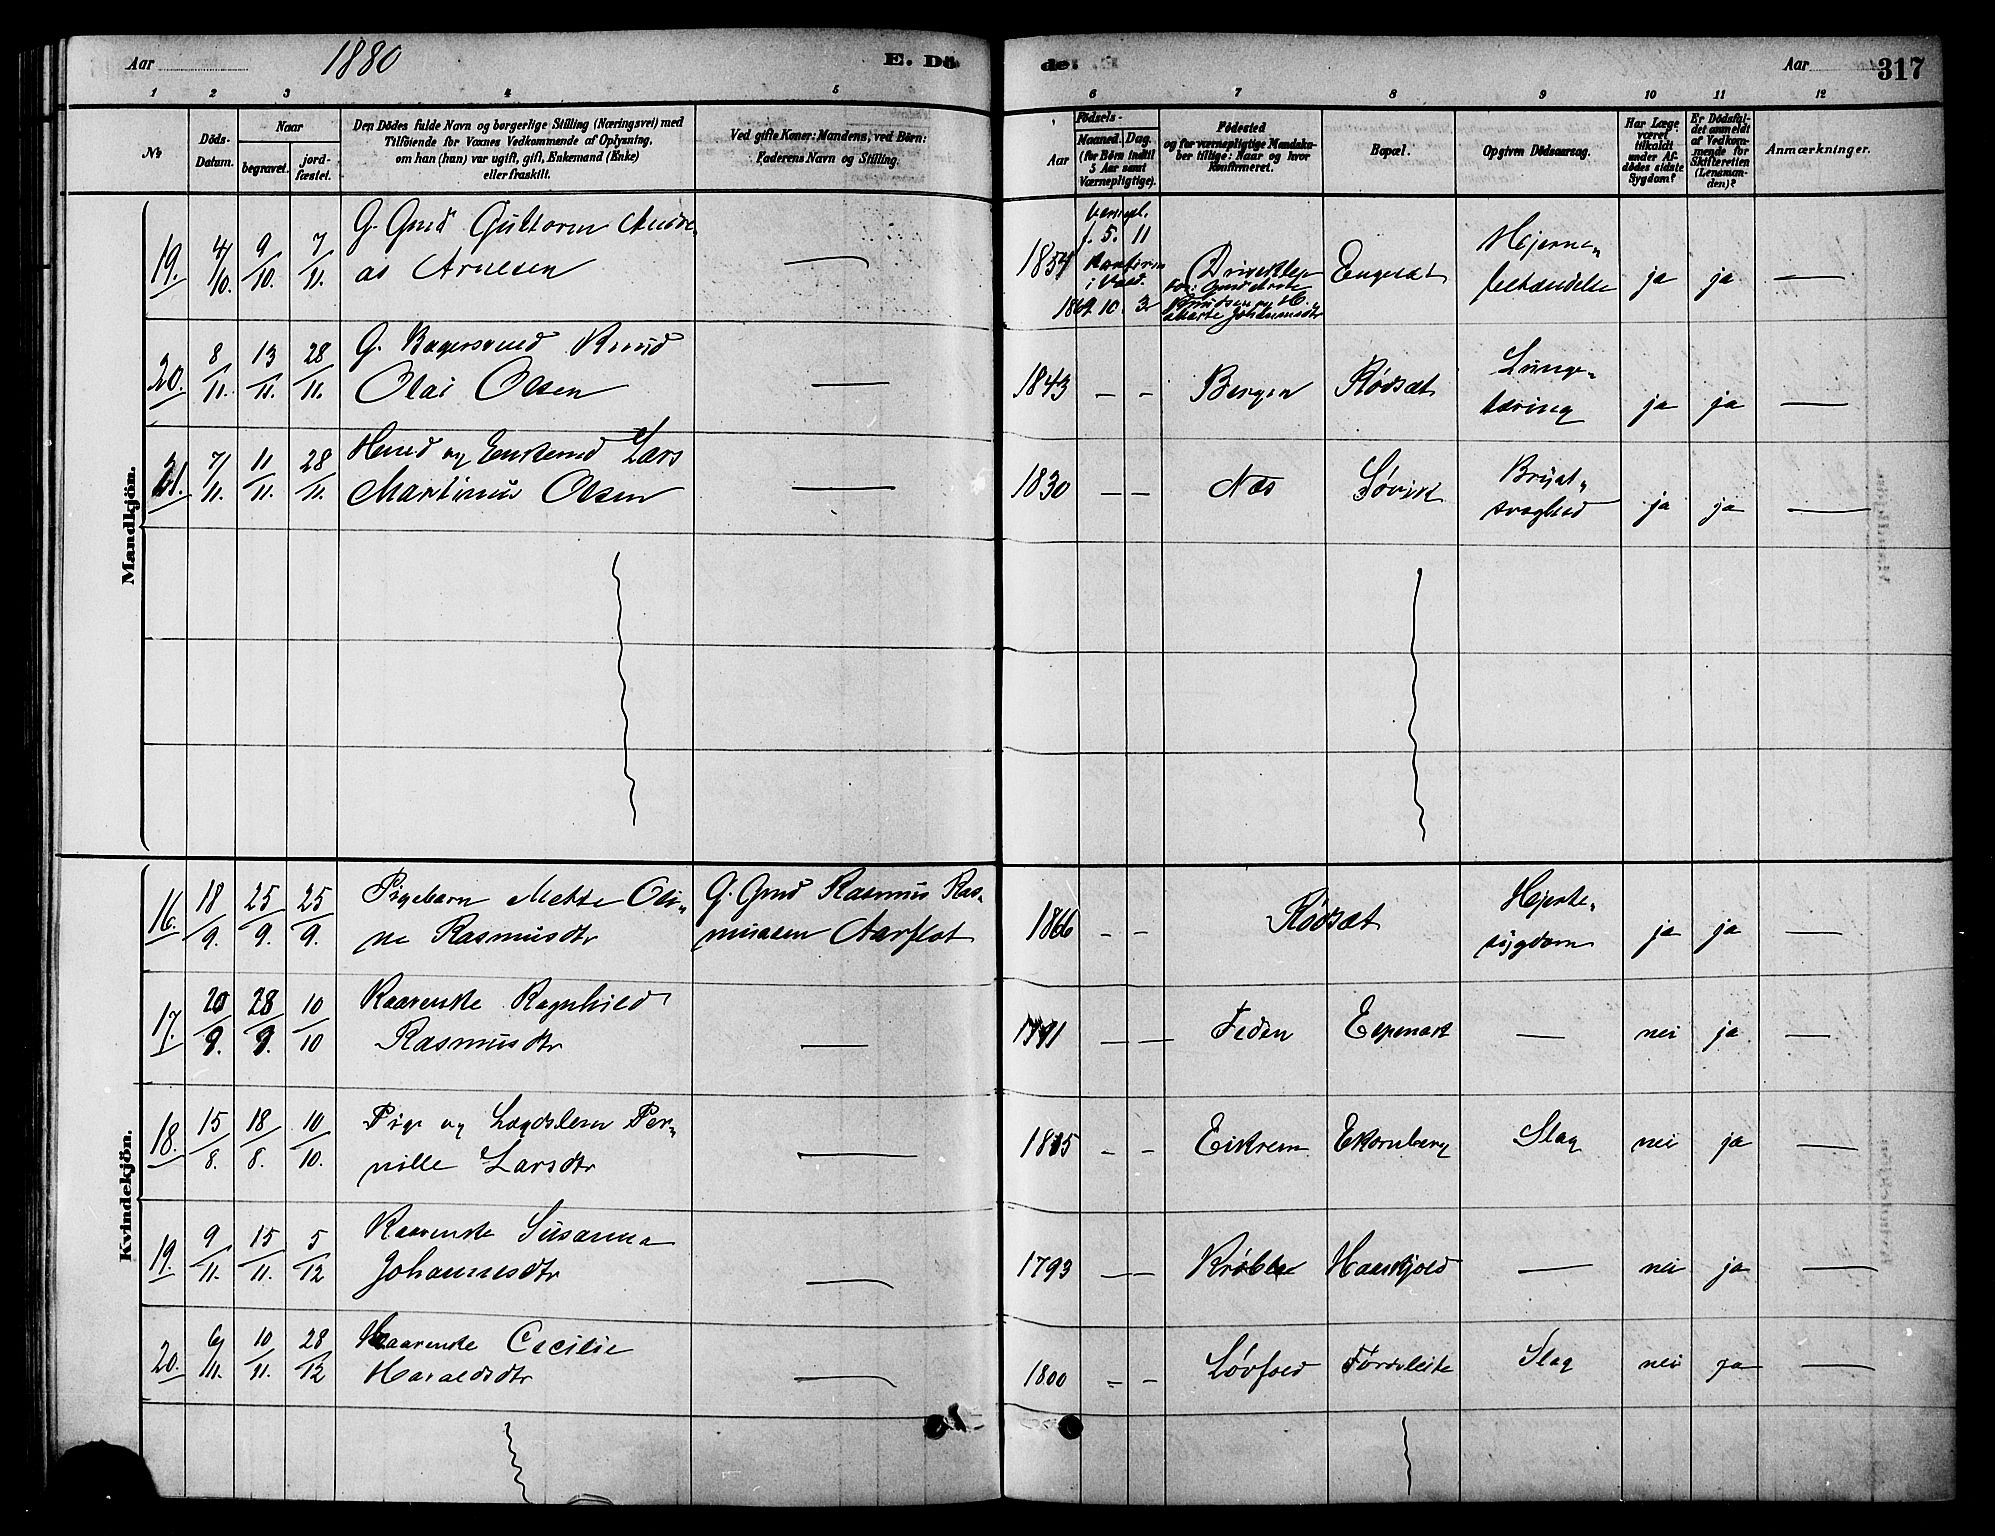 Aar 1880 E. Dö
de. Aar 317
1 2 3 4 5 6 7 8 9 10 11 12
No
Döds-
Datum.
Naar
begravet.
jord-
fæstet.
Den Dödes fulde Navn og borgerlige Stilling (Næringsvei) med
Tilföiende for Voxnes Vedkommende af Oplysning,
om han (hun) var ugift, gift, Enkemand (Enke)
eller fraskilt.
Ved gifte Koner: Mandens, ved Börn:
Faderens Navn og Stilling.
Födsels-
Aar
Maaned. Dag.
(for Börn indtil
5 Aar samt
Værnepligtige).
Födested
og for værnepligtige Mandska-
ber tillige: Naar og hvor
Konfirmeret.
Bopæl.
Opgiven Dödsaarsag.
Har Læge
været
tilkaldt
under Af-
dödes sidste
Sygdom?
Er Dödsfal-
det anmeldt
af Vedkom-
mende for
Skifteretten
(Lensman-
den)?
Anmærkninger.
Mandkjön.
19. 4/10. 9/10. 7/11. G. Gmd Guttorm Andre-
as Arnesen — 1854 f. 5. 11 Engesæt Hjerne-
betændelse ja ja —
1869. 10. 3
Johannesdtr
20. 8/11. 13/11. 28/11. G. Bagersvend Knud
Olai Olsen — 1843 — — Bergen Rødsæt Lunge-
tæring ja ja —
21. 7/11. 11/11. 28/11. Husmd og Enkemd Lars
Martinus Olsen — 1830 — — Næs Søvik Bryst-
svaghed ja ja —
Kvindekjön.
16. 18/9. 25/9. 25/9. Pigebarn Mette Oli-
ne Rasmusdtr G. Gmd Rasmus Ras-
mussen Aarflot 1866 — — Rødsæt Hjerte-
sygdom ja ja —
17. 20/9. 28/9. 10/10 Kaarenke Ragnhild
Rasmusdtr — 1791 — — Feden — nei ja —
18. 15/8. 18/8. 10/10. Pige og Lægdslem Per-
nille Larsdtr — 1815 — — Eikrem Ekornberg Slag nei ja —
19. 9/11. 15/11. 5/12 Kaarenke Susanna
Johannesdtr — 1793 — — — nei ja —
20. 6/11. 10/11. 28/12 Kaarenke Cecilie
Haraldsdtr — 1800 — — Løvfold Førdeleite Slag nei ja —